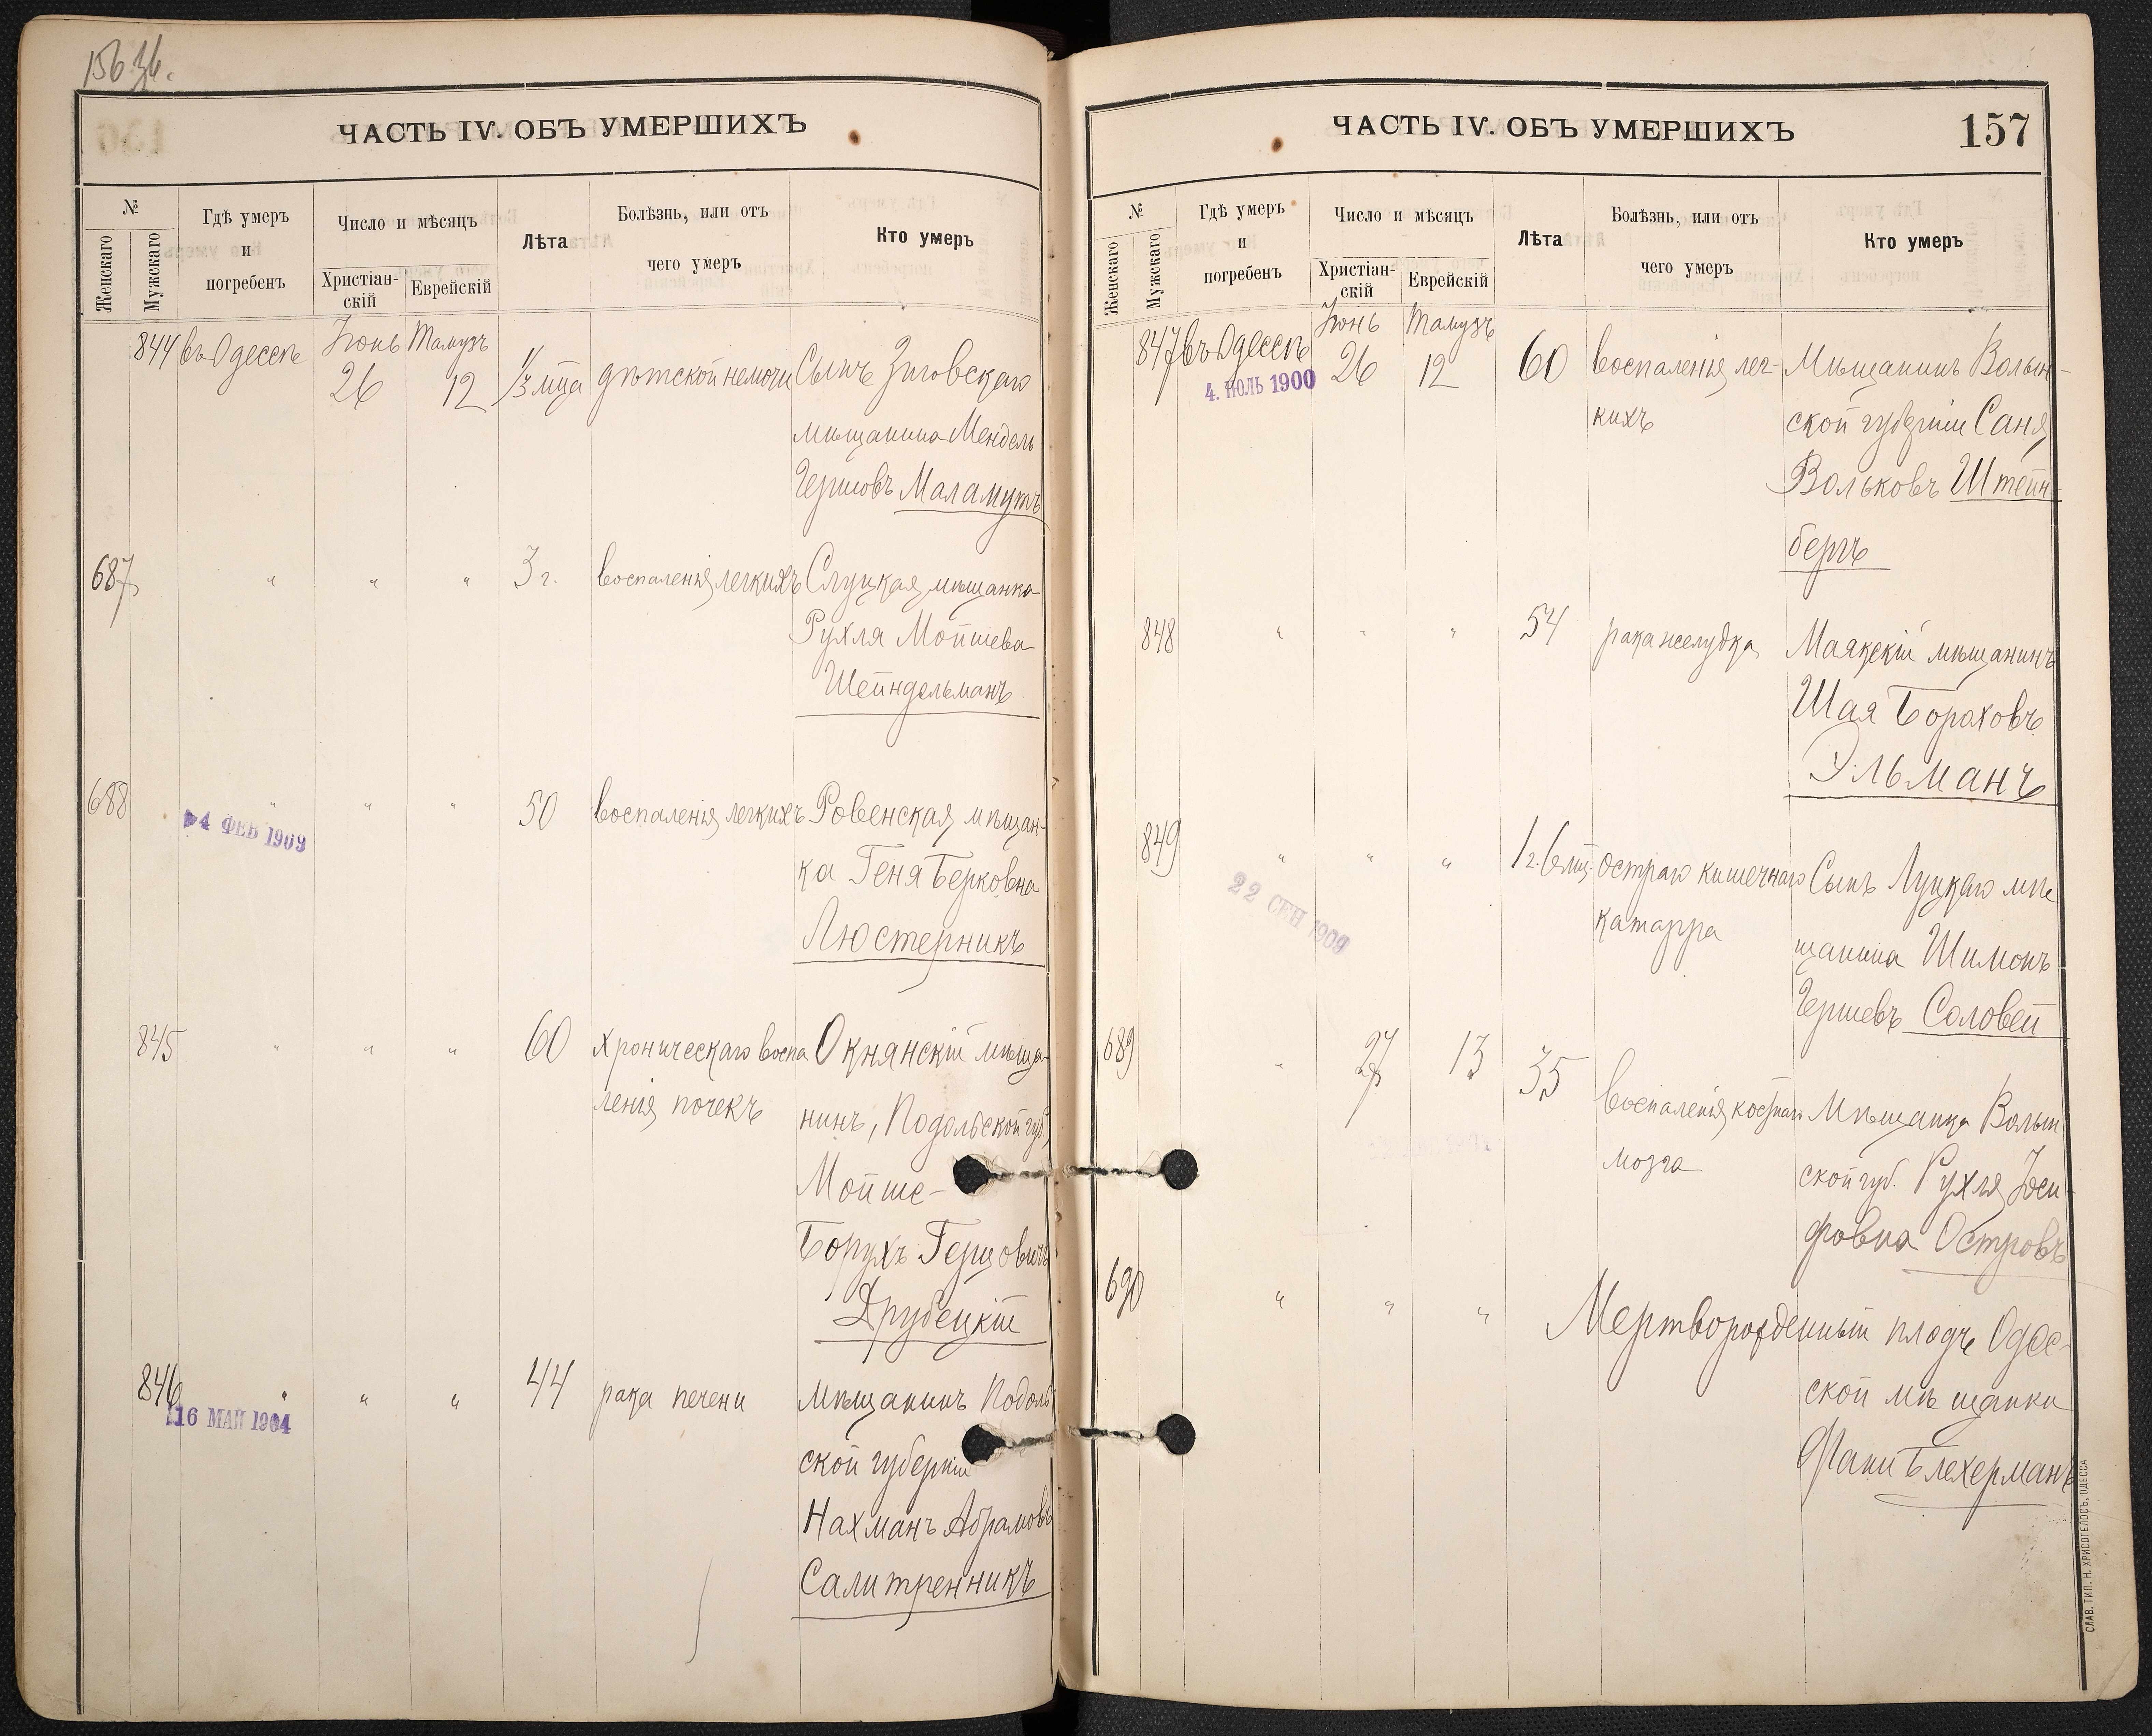 156 об.
ЧАСТЬ IV. ОБЪ УМЕРШИХЪ
№
Женскаго
Мужскаго
Гдѣ умеръ
и
погребенъ
Число и мѣсяцъ
Христіан-
скій
Еврейскій
Лѣта
Болѣзнь, или отъ
чего умеръ
Кто умеръ
844 въ Одессѣ Іюнь Тамузъ
26 12 1/3 мца дѣтской немочи Сынъ Зиговскаго
мѣщанина Мендель
Гершовъ Маламутъ
687 " " " 3 г. воспаленія легкихъ Слуцкая мѣщанка
Рухля Мойшева
Шейндельманъ
688 " " " 50 воспаленія легкихъ Ровенская мѣщан-
4 ФЕВ 1909
ка Геня Берковна
Люстерникъ
845 " " " 60 хроническаго воспа Окнянскій мѣща-
ленія почекъ нинъ, Подольской губ.,
Мойше-
Борухъ Герцовичъ
Друбецкій
846 " " " 44 рака печени мѣщанинъ Подоль
16 МАЙ 1904
ской губерніи
Нахманъ Абрамовъ
Салитренникъ
ЧАСТЬ IV. ОБЪ УМЕРШИХЪ
157
№
Женскаго
Мужскаго
Гдѣ умеръ
и
погребенъ
Число и мѣсяцъ
Христіан-
скій
Еврейскій
Лѣта
Болѣзнь, или отъ
чего умеръ
Кто умеръ
847 въ Одессѣ Іюнь Тамузъ
4. ІЮЛЬ 1900
26 12 60 воспаленія лег- Мѣщанинъ Волын-
кихъ ской губерніи Саня
Вольковъ Штейн-
бергъ
848 " " " 54 рака желудка Маякскій мѣщанинъ
Шая Бораховъ
Эльманъ
849 " " " 1 г. 6 мц. остраго кишечнаго Сынъ Луцкаго мѣ
22 СЕН 1909
катарра щанина Шимонъ
Гершевъ Соловей
689 " 27 13 35 воспаленія костнаго Мѣщанка Волын
мозга ской губ. Рухля Іоси-
фовна Островъ
690 " " " Мертворожденный плодъ Одес-
ской мѣщанки
Фани Блехерманъ
СЛАВ. ТИП. Н. ХРИСОГЕЛОСЪ, ОДЕССА